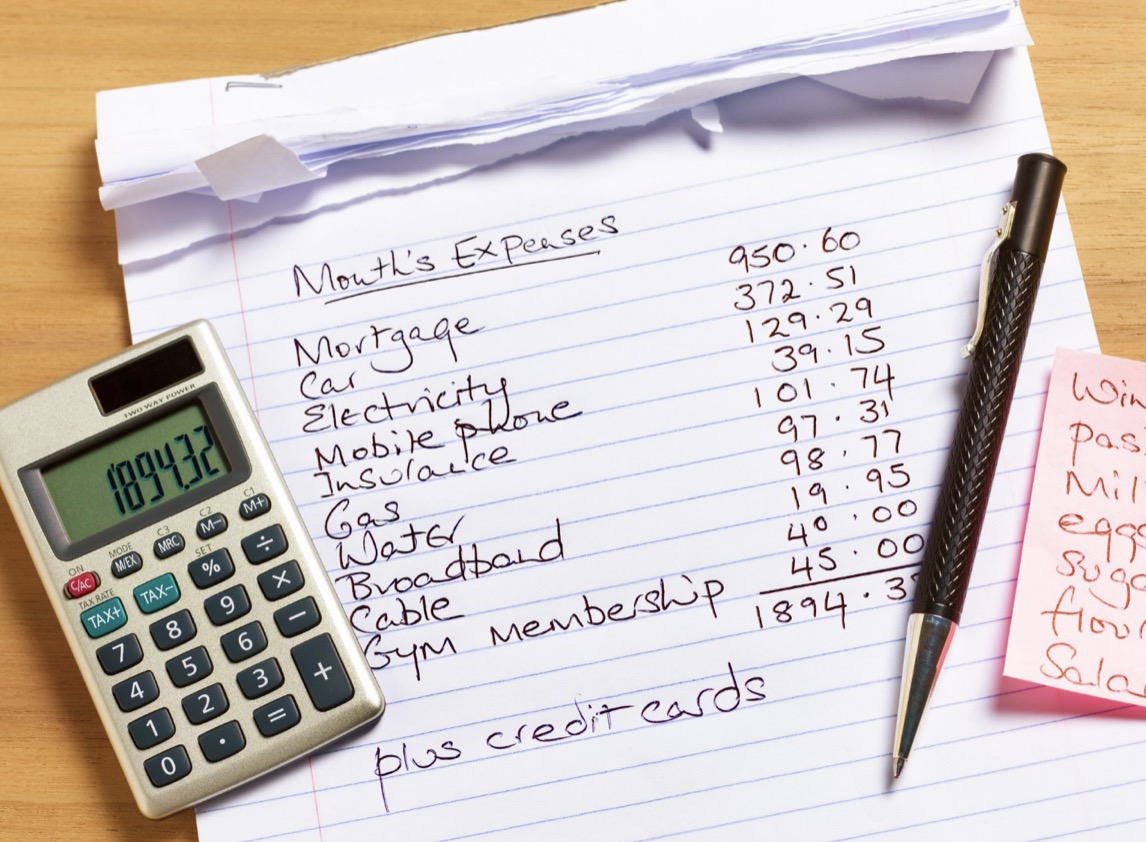 Month's Expenses
Mortgage 950.60
Car 372.51
Electricity 129.29
Mobile phone 39.15
Insurance 101.74
Gas 97.31
Water 98.77
Broadband 19.95
Cable 40.00
Gym Membership 45.00
1894.3
plus credit cards
TWO WAY POWER
1894.32
C1
C2
C3
MODE
ON
M+
M-
MRC
M/EX
C/AC
SET
TAX RATE
÷
%
TAX-
TAX+
×
9
8
7
−
6
5
4
+
3
2
1
=
.
0
Mil
eggs
flour